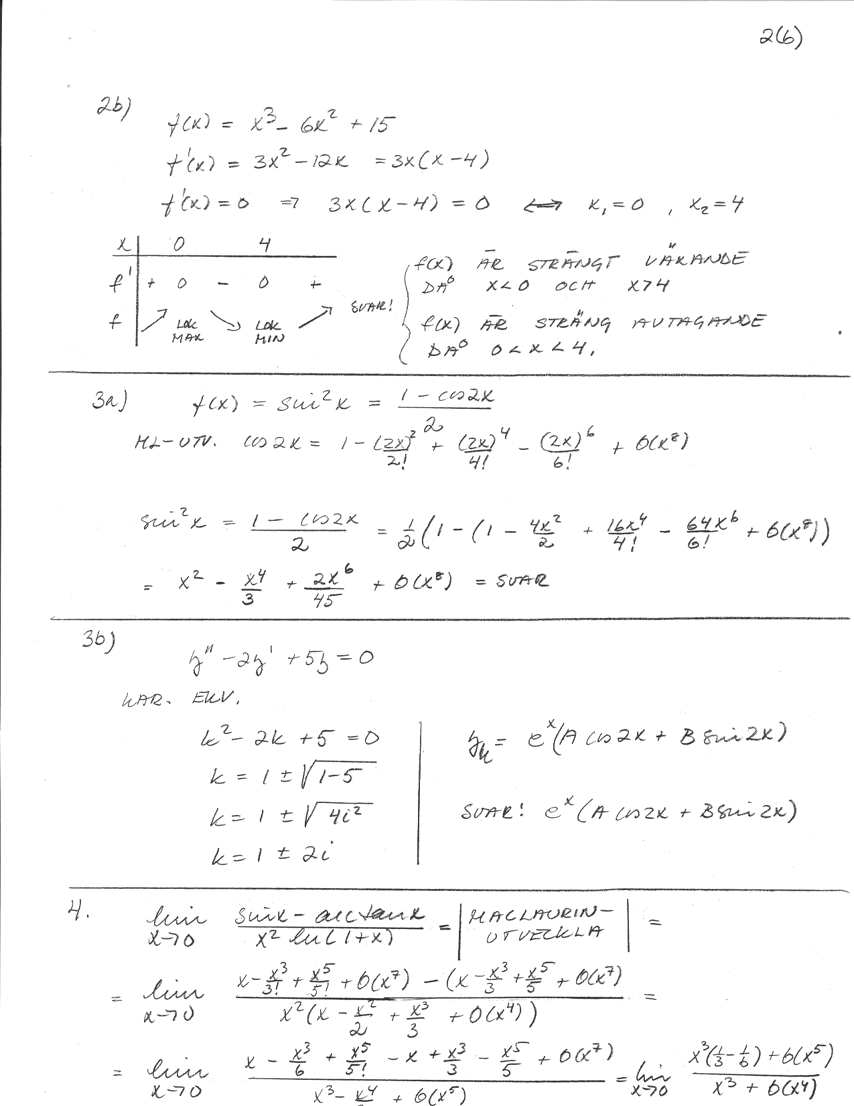 2(6)
2b)
f(x) = x³ - 6x² + 15
f'(x) = 3x² - 12x = 3x(x-4)
f'(x) = 0 ⇒ 3x(x-4) = 0 ⟺ x₁ = 0 , x₂ = 4
x | 0 4
f' | + 0 - 0 +
f | ↗ LOK MAX ↘ LOK MIN ↗
SVAR!
f(x) ÄR STRÄNGT VÄXANDE
DÅ x<0 OCH x>4
f(x) ÄR STRÄNG AVTAGANDE
DÅ 0<x<4.
3a) f(x) = sin²x = (1 - cos2x)/2
ML-UTV. cos2x = 1 - (2x)²/2! + (2x)⁴/4! - (2x)⁶/6! + O(x⁸)
sin²x = (1 - cos2x)/2 = 1/2 (1 - (1 - 4x²/2 + 16x⁴/4! - 64x⁶/6! + O(x⁸))
= x² - x⁴/3 + 2x⁶/45 + O(x⁸) = SVAR
3b)
y'' - 2y' + 5y = 0
KAR. EKV.
k² - 2k + 5 = 0
k = 1 ± √(1-5)
k = 1 ± √(4i²)
k = 1 ± 2i
yₕ = eˣ(A cos2x + B sin2x)
SVAR! eˣ(A cos2x + B sin2x)
4. lim x→0 (sinx - arctanx)/(x² ln(1+x)) = | MACLAURIN-UTVECKLA | =
= lim x→0 (x - x³/3! + x⁵/5! + O(x⁷) - (x - x³/3 + x⁵/5 + O(x⁷))/(x²(x - x²/2 + x³/3 + O(x⁴)) =
= lim x→0 (x - x³/6 + x⁵/5! - x + x³/3 - x⁵/5 + O(x⁷))/(x³ - x⁴/ + O(x⁵)) = lim x→0 (x³(1/3 - 1/6) + O(x⁵))/(x³ + O(x⁴))